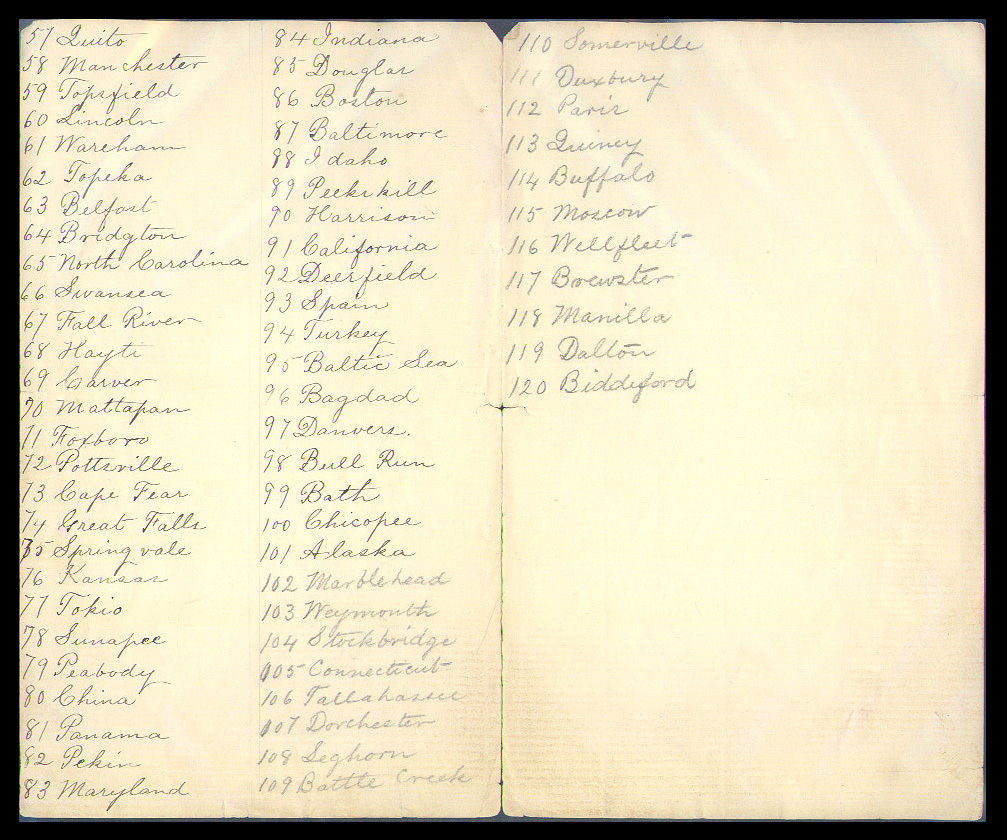 57 Quito
58 Manchester
59 Topsfield
60 Lincoln
61 Wareham
62 Topeka
63 Belfast
64 Bridgton
65 North Carolina
66 Swansea
67 Fall River
68 Hayti
69 Carver
70 Mattapan
71 Foxboro
72 Pottsville
73 Cape Fear
74 Great Falls
75 Springvale
76 Kansas
77 Tokio
78 Sunapee
79 Peabody
80 China
81 Panama
82 Pekin
83 Maryland
84 Indiana
85 Douglas
86 Boston
87 Baltimore
88 Idaho
89 Peekskill
90 Harrison
91 California
92 Deerfield
93 Spain
94 Turkey
95 Baltic Sea
96 Bagdad
97 Danvers.
98 Bull Run
99 Bath
100 Chicopee
101 Alaska
102 Marblehead
103 Weymouth
104 Stockbridge
105 Connecticut
106 Tallahassee
107 Dorchester
108 Leghorn
109 Battle Creek
110 Somerville
111 Duxbury
112 Paris
113 Quincy
114 Buffalo
115 Moscow
116 Wellfleet
117 Brewster
118 Manilla
119 Dalton
120 Biddeford